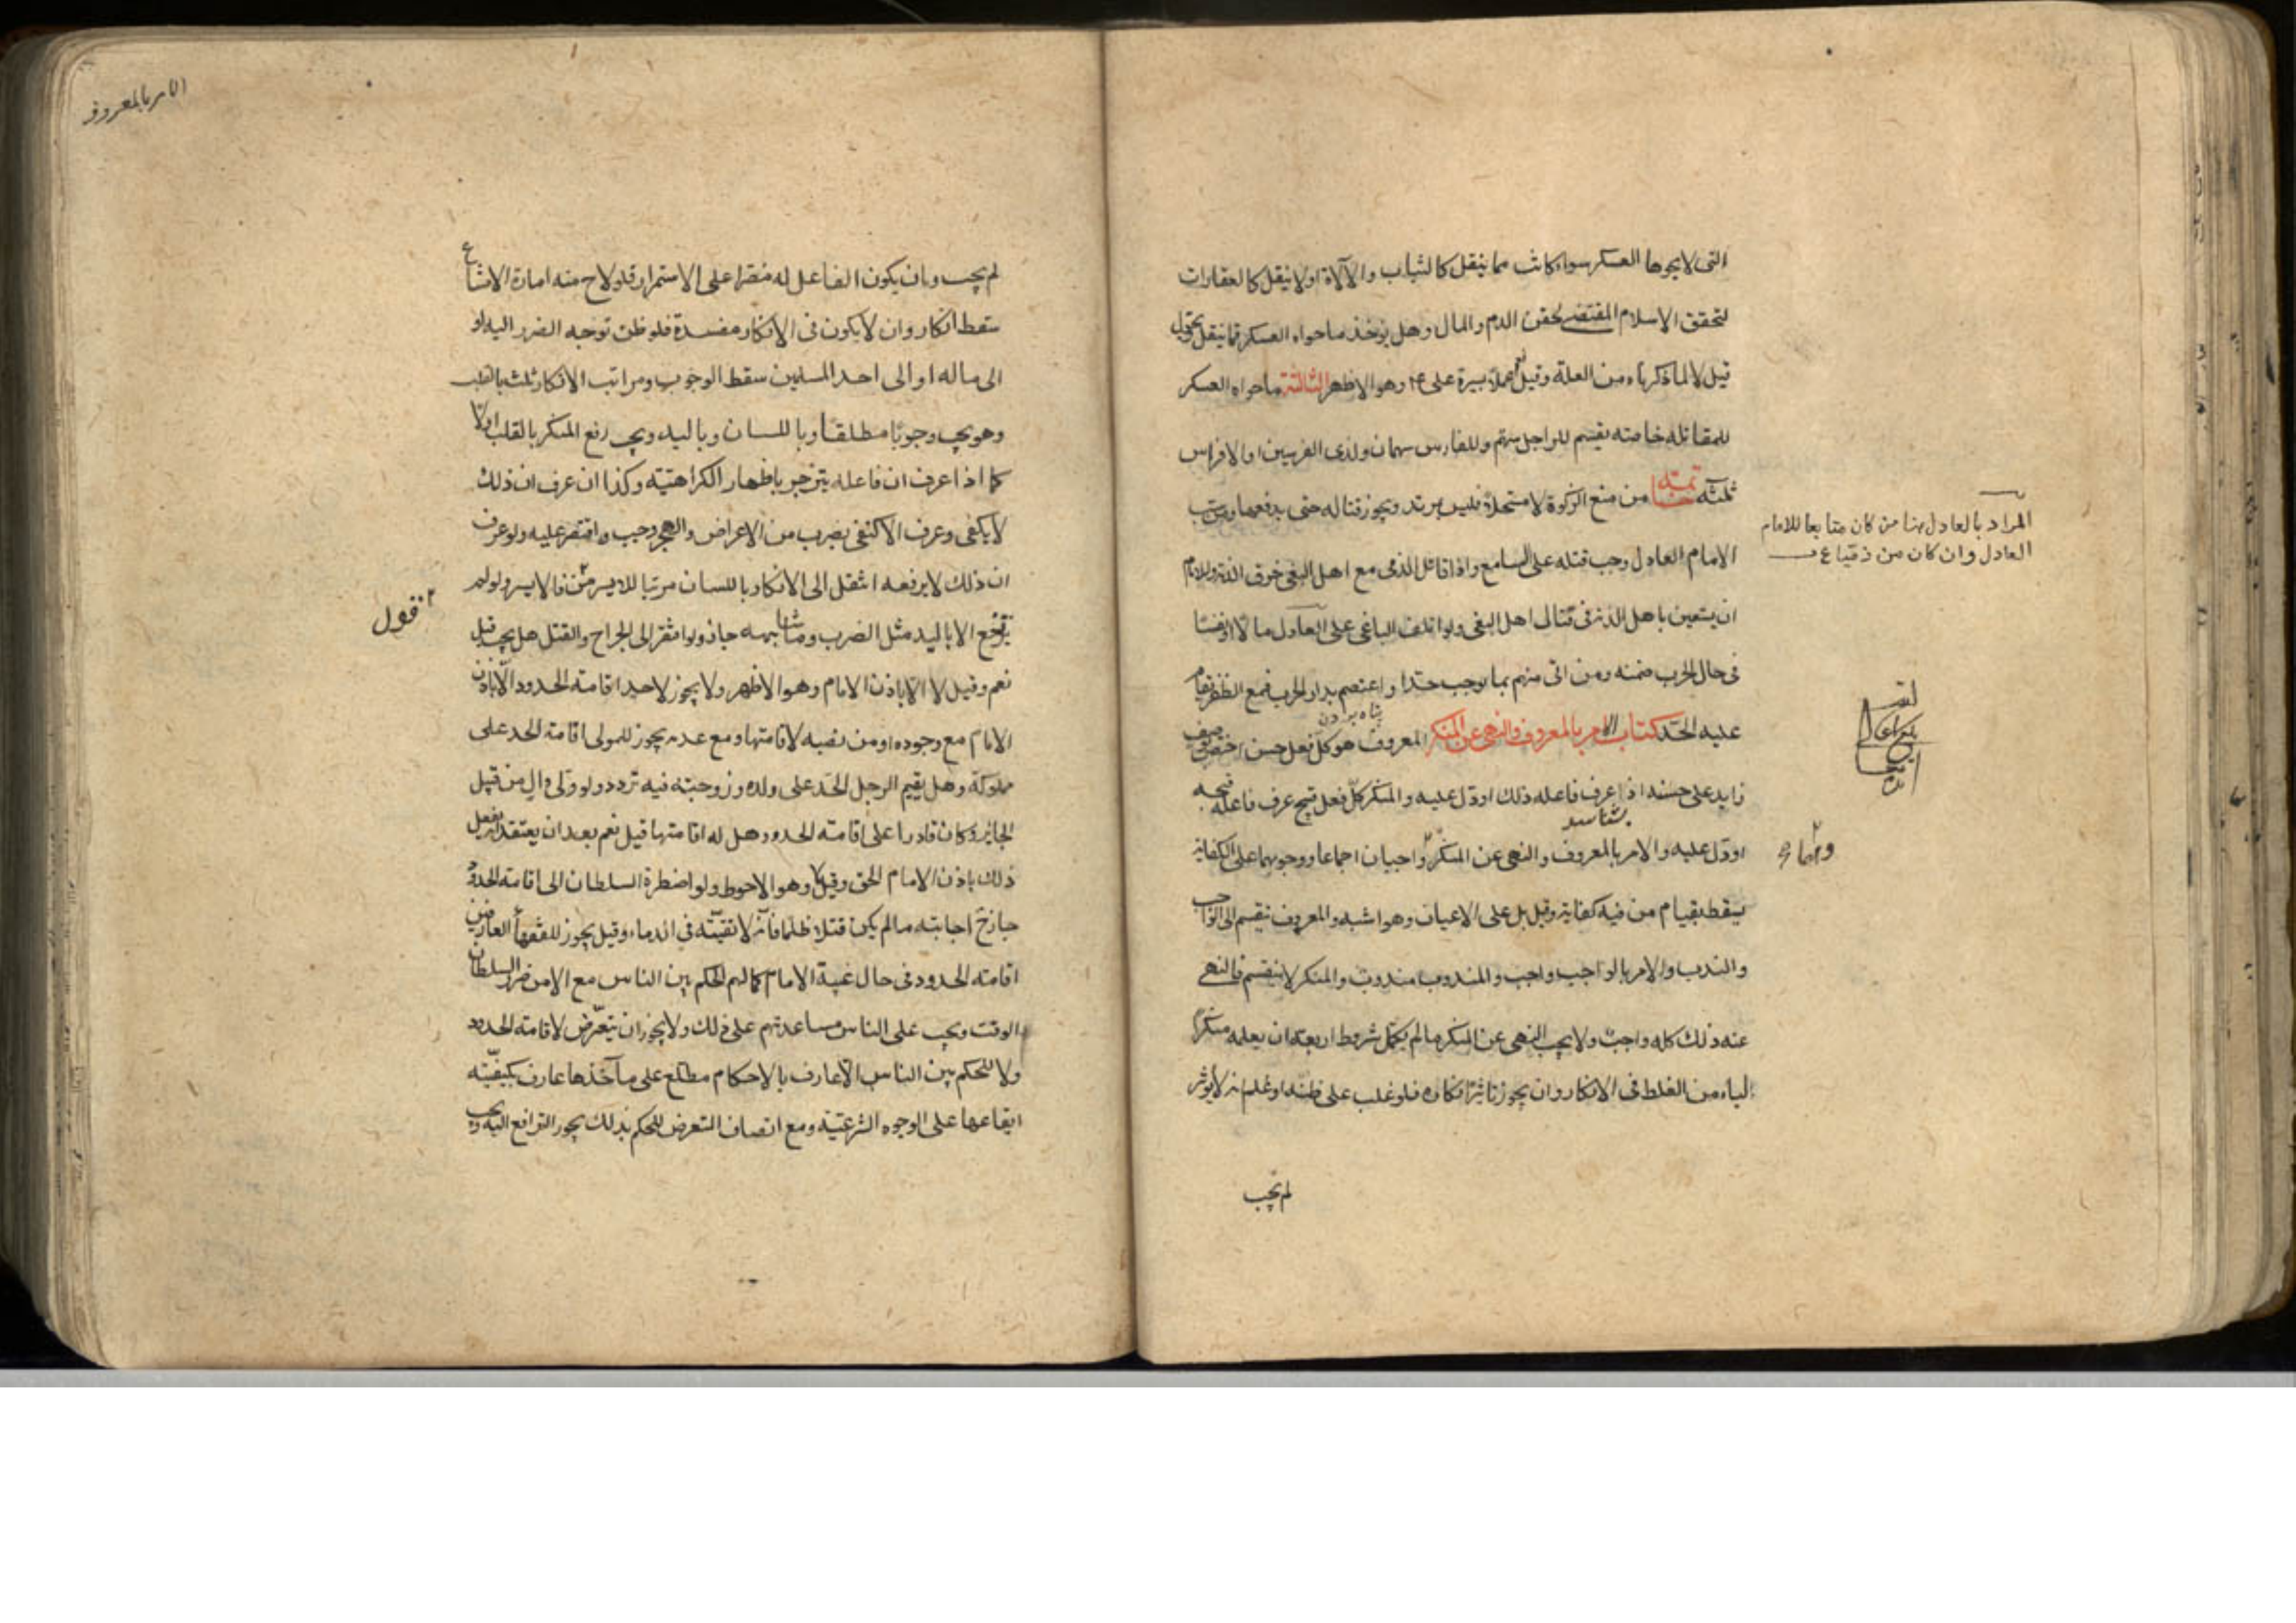 التى لا يحوها العسكر سواء كانت مما ينقل كالثياب والآلاة او لا ينقل كالعقارات
لتحقق الاسلام المقتضى لحقن الدم والمال وهل يوخذ ما حواه العسكر مما ينقل ويحول
قيل لا لما ذكرناه من العلة وقيل نعم عملا بسيرة على ع وهو الاظهر الثالثة ما حواه العسكر
للمقاتلة خاصة يقسم للراجل سهم وللفارس سهمان ولذى الفرسين او الافراس
ثلثة تتمة من منع الزكوة لا مستحلا فليس بمرتد ويجوز قتاله حتى يدفعها ومن سب
الامام العادل وجب قتله على السامع واذا قاتل الذمى مع اهل البغى خرق الذمة وللامام
ان يستعين باهل الذمة فى قتال اهل البغى ولو اتلف الباغى على العادل مالا او نفسا
فى حال الحرب ضمنه ومن اتى منهم بما يوجب حدا واعتصم بدار الحرب فمع الظفر يقام
پناه بردن
عليه الحد كتاب الامر بالمعروف والنهى عن المنكر المعروف هو كل فعل حسن اختص بوصف
زايد على حسنه اذا عرف فاعله ذلك او دل عليه والمنكر كل فعل قبيح عرف فاعله قبحه
بشناسد
او دل عليه والامر بالمعروف والنهى عن المنكر واجبان اجماعا ووجوبهما على الكفاية
يسقط بقيام من فيه كفاية وقيل بل على الاعيان وهو اشبه والمعروف ينقسم الى الواجب
والندب والامر بالواجب واجب والمندوب مندوب والمنكر لا ينقسم فالنهى
عنه ذلك كله واجب ولا يجب النهى عن المنكر ما لم يكمل شروط اربعة ان يعلمه منكرا
ليامن الغلط فى الانكار وان يجوز تاثير انكاره فلو غلب على ظنه او علم انه لا يؤثر
لم يجب
المراد بالعادل هنا من كان متابعا للامام
العادل وان كان من
الامر بالمعروف
لم يجب وان يكون الفاعل له مصرا على الاستمرار فلو لاح منه امارة الامتناع
سقط انكار وان لا يكون فى الانكار مفسدة فلو ظن توجه الضرر اليه او
الى ماله او الى احد المسلمين سقط الوجوب ومراتب الانكار ثلث بالقلب
وهو يجب وجوبا مطلقا وباللسان وباليد ويجب رفع المنكر بالقلب اولا
كما اذا عرف ان فاعله ينزجر باظهار الكراهتية وكذا ان عرف ان ذلك
لا يكفى وعرف الاكتفى بضرب من الاعراض والهجر وجب واقتصر عليه ولو عرف
ان ذلك لا يرفعه انتقل الى الانكار باللسان مرتبا للايسر من فالايسر ولو لم
يرتفع الا باليد مثل الضرب وما شابهه جاز ولو افتقر الى الجراح والقتل هل يجب قيل
قول
نعم وقيل لا الا باذن الامام وهو الاظهر ولا يجوز لاحد اقامة الحدود الا باذن
الامام مع وجوده او من نصبه لاقامتها ومع عدمه يجوز للمولى اقامة الحد على
مملوكه وهل يقيم الرجل الحد على ولده وزوجته فيه تردد ولو ولى وال من قبل
الجاير وكان قادرا على اقامة الحدود هل له اقامتها قيل نعم بعد ان يعتقد انه يفعل
ذلك باذن الامام الحق وقيل لا وهو الاحوط ولو اضطره السلطان الى اقامة الحدود
جاز ح اجابته ما لم يكن قتلا ظلما فانه لا تقية فى الدماء وقيل يجوز للفقهاء العارفين
اقامة الحدود فى حال غيبة الامام كما لهم الحكم بين الناس مع الامن ضرر السلطان
الوقت ويجب على الناس مساعدتهم على ذلك ولا يجوز ان يتعرض لاقامة الحدود
ولا للحكم بين الناس الا عارف بالاحكام مطلع على مآخذها عارف بكيفية
ايقاعها على الوجوه الشرعية ومع اتصاف التعرض للحكم بذلك يجوز الترافع اليه ويجب